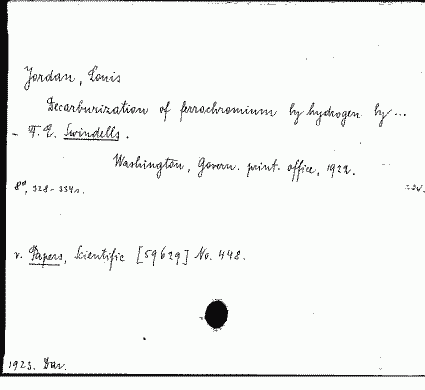 Jordan, Louis
Decarburization of ferrochromium by hydrogen by ...
– F. E. Swindells.
Washington, Govern. print. office, 1922.
8°, 328-334 s.
v. Papers, Scientific [59629] No. 448.
1923. Dar.